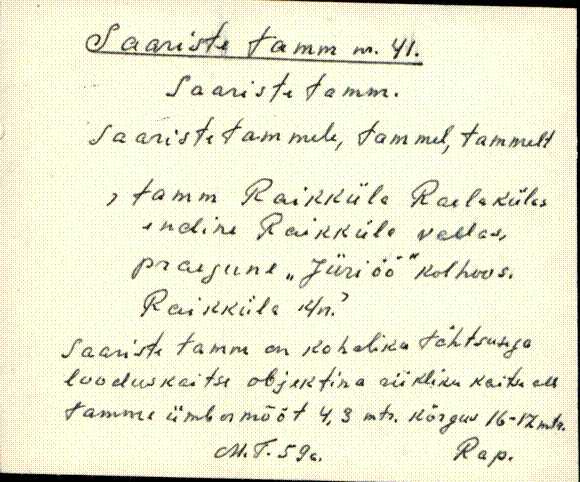 Saariste tamm nr. 41.
Saariste tamm.
Saariste tammele, tammel, tammelt
, tamm Raikküla Raelaküles
endine Raikküla vallas,
praegune "Jüriöö" kolhoos.
Raikküla k/n.?
Saariste tamm on kohaliku tähtsusega
looduskaitse objektina riikliku kaitse all
tamme ümbermõõt 4,3 mtr. kõrgus 16-17 mtr.
M.T. 59a. Rap.